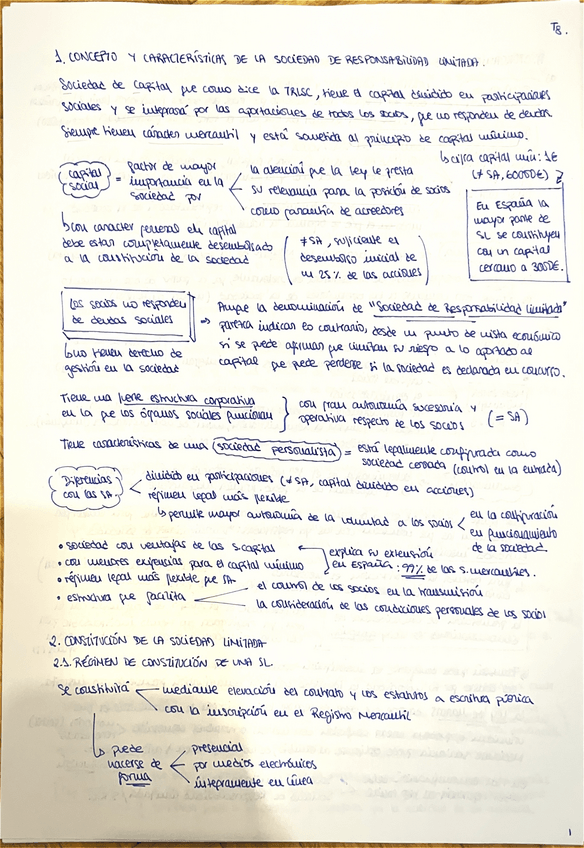 T8.
1. CONCEPTO Y CARACTERÍSTICAS DE LA SOCIEDAD DE RESPONSABILIDAD LIMITADA.
Sociedad de capital que como dice la TRLSC, tiene el capital dividido en participaciones
sociales y se integrará por las aportaciones de todos los socios, que no responden de deudas.
Siempre tienen carácter mercantil y está sometida al principio de capital mínimo.
↳ cifra capital mín: 1€
(≠ SA, 60000€)
En España la
mayor parte de
SL se constituyen
con un capital
cercano a 3000€.
Capital
social
= factor de mayor
importancia en la
sociedad por
la atención que la ley le presta
su relevancia para la posición de socios
como garantía de acreedores
↳ con caracter general el capital
debe estar completamente desembolsado
a la constitución de la sociedad
(≠ SA, suficiente el
desembolso inicial de
un 25% de las acciones)
Los socios no responden
de deudas sociales
↳ no tienen derecho de
gestión en la sociedad
⇒ Aunque la denominación de "Sociedad de Responsabilidad Limitada"
parezca indicar lo contrario, desde un punto de vista económico
si se puede afirmar que limitan su riesgo a lo aportado al
capital que puede perderse si la sociedad es declarada en concurso.
Tiene una fuerte estructura corporativa
en la que los órganos sociales funcionan
con gran autonomía sucesoria y
operativa respecto de los socios
(= SA)
Tiene características de una sociedad personalista = está legalmente configurada como
sociedad cerrada (control en la entrada)
Diferencias
con las SA
dividido en participaciones (≠ SA, capital dividido en acciones)
régimen legal más flexible
↳ permite mayor autonomía de la voluntad a los socios
en la configuración
en funcionamiento
de la sociedad.
• sociedad con ventajas de las s.capital
• con menores exigencias para el capital mínimo
• régimen legal más flexible que SA
• estructura que facilita
explica su extensión
en España: 99% de las s. mercantiles.
el control de los socios en la transmisión
la consideración de las condiciones personales de los socios
2. CONSTITUCIÓN DE LA SOCIEDAD LIMITADA
2.1. RÉGIMEN DE CONSTITUCIÓN DE UNA SL.
Se constituirá
mediante elevación del contrato y los estatutos a escritura pública
con la inscripción en el Registro Mercantil
↳ puede
hacerse de
forma
presencial
por medios electrónicos
íntegramente en línea
1